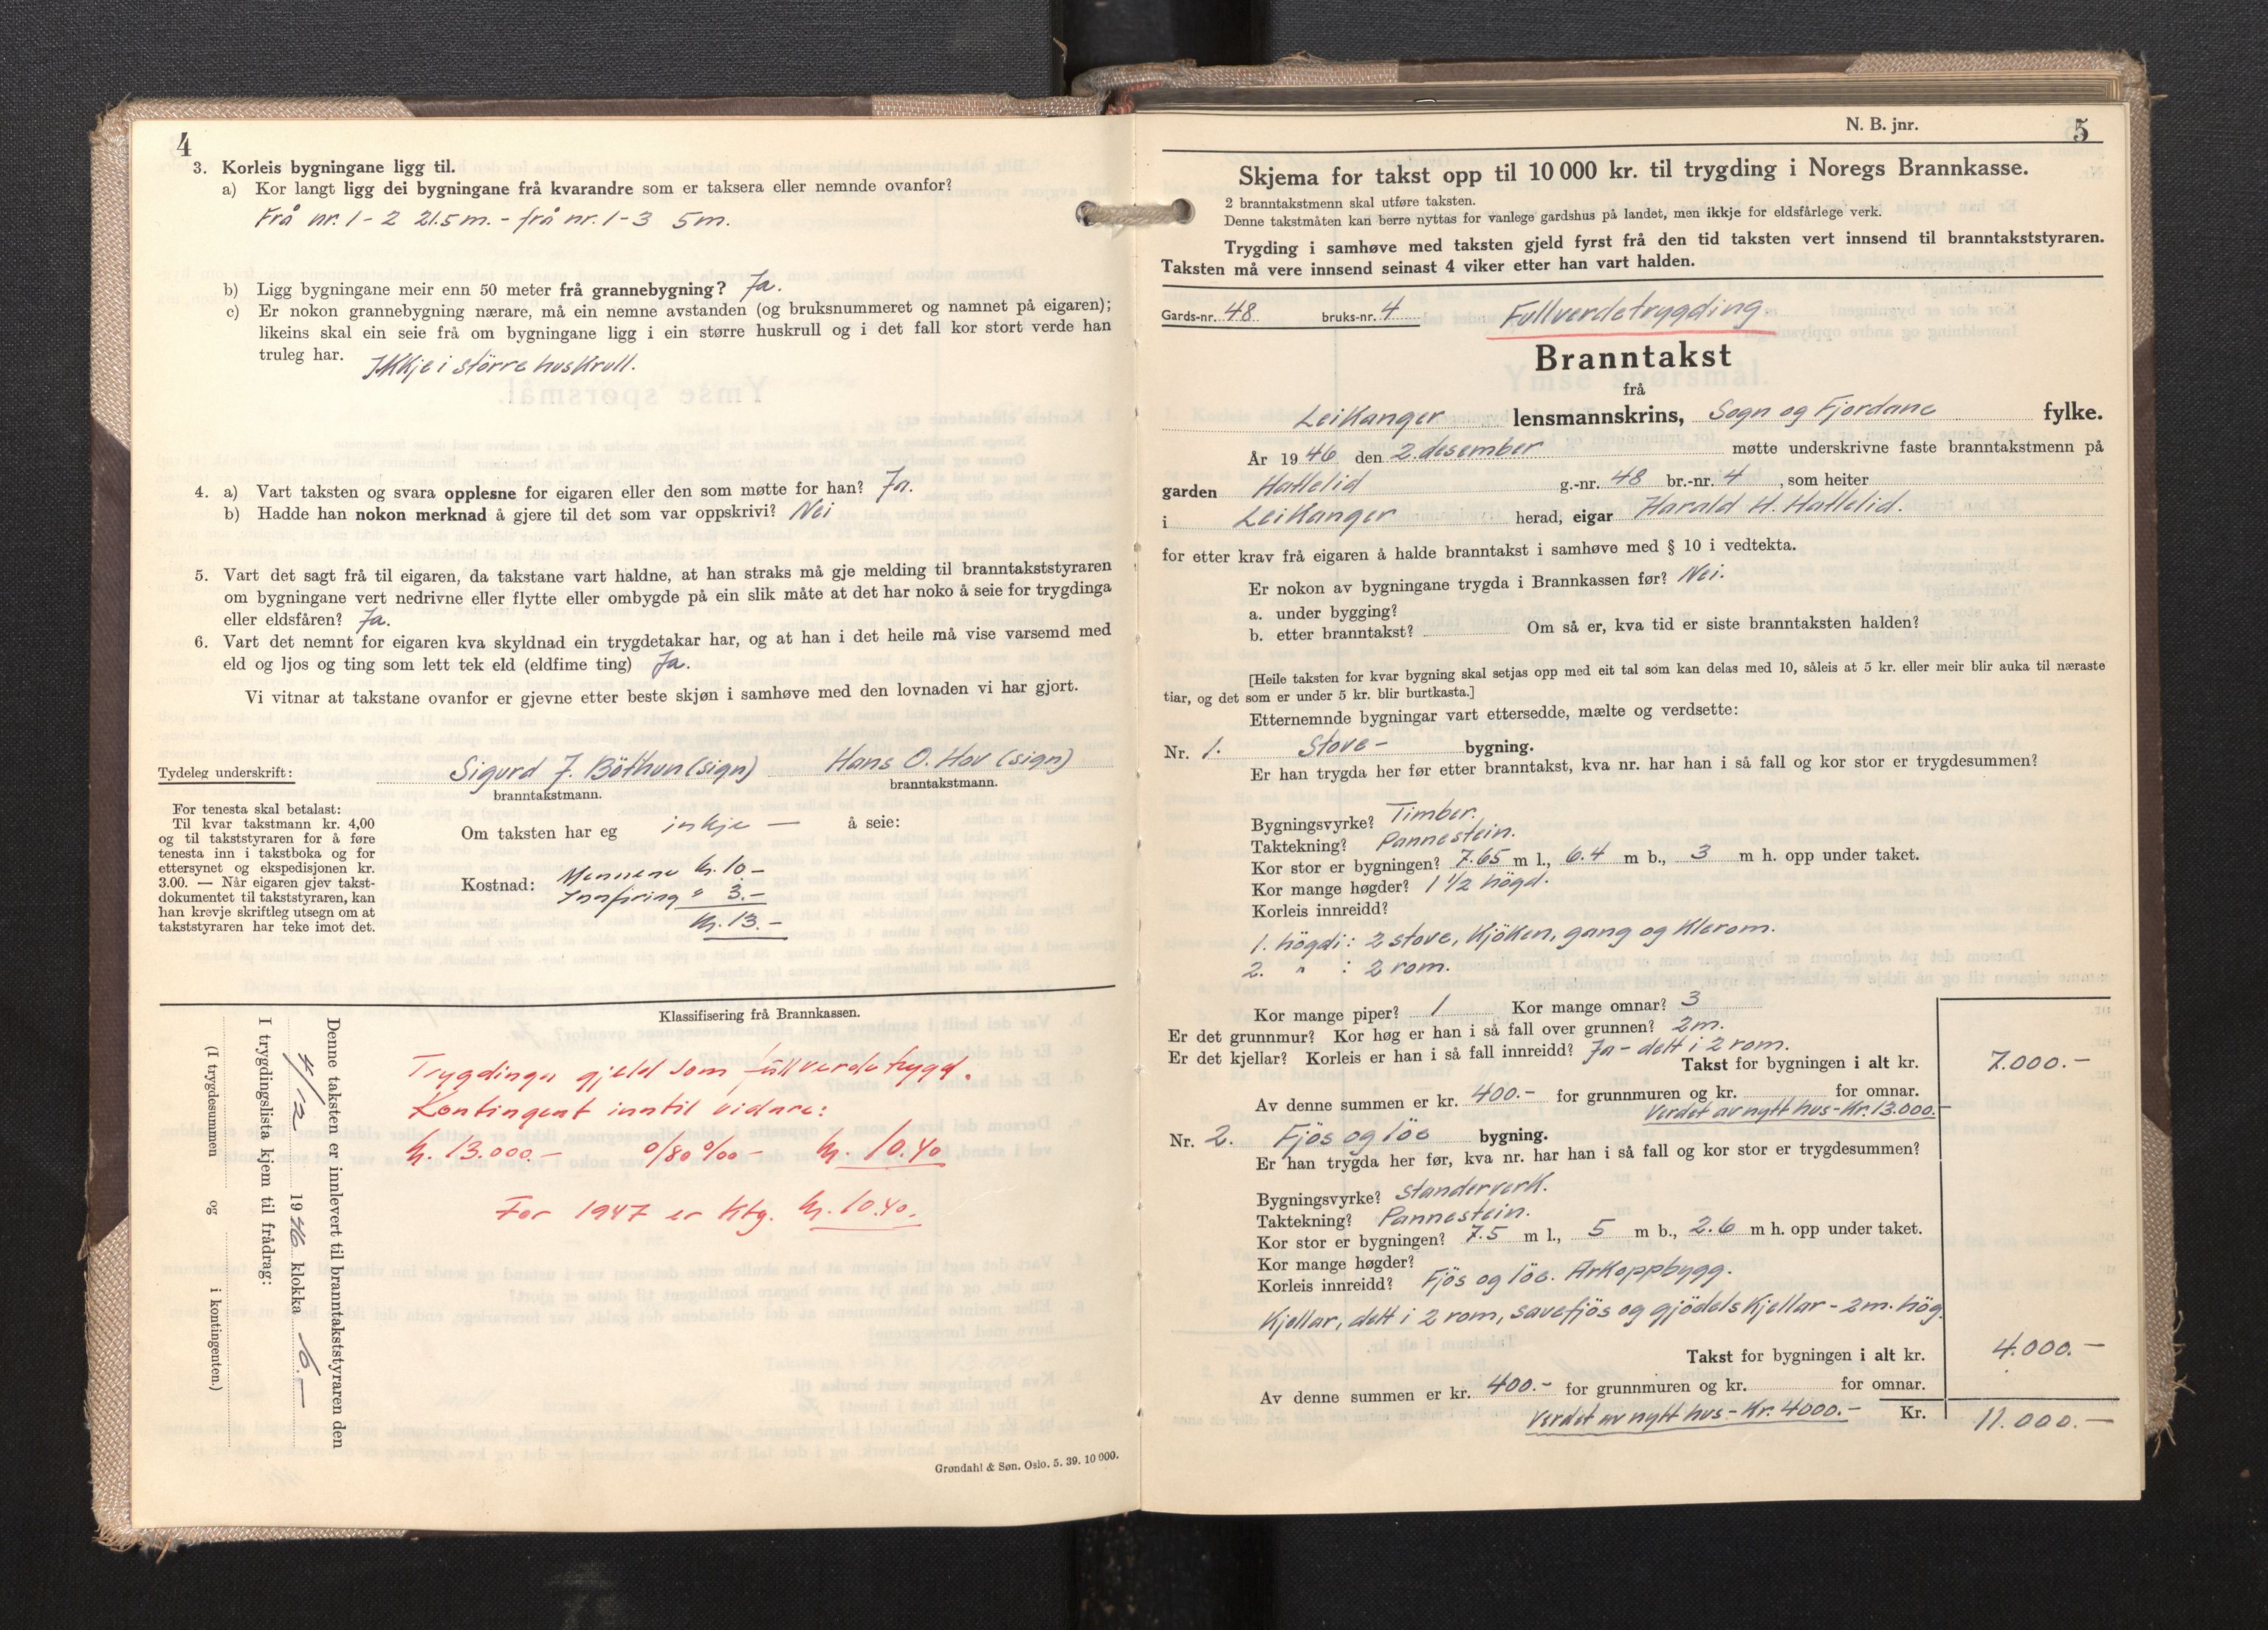 4
3. Korleis bygningane ligg til.
a) Kor langt ligg dei bygningane frå kvarandre som er taksera eller nemnde ovanfor?
Frå nr. 1 - 2 21.5 m. - frå nr. 1 - 3 5 m.
b) Ligg bygningane meir enn 50 meter frå grannebygning? Ja.
c) Er nokon grannebygning nærare, må ein nemne avstanden (og bruksnummeret og namnet på eigaren);
likeins skal ein seie frå om bygningane ligg i ein større huskrull og i det fall kor stort verde han
truleg har. Ikkje i större huskrull.
4. a) Vart taksten og svara opplesne for eigaren eller den som møtte for han? Ja.
b) Hadde han nokon merknad å gjere til det som var oppskrivi? Nei
5. Vart det sagt frå til eigaren, da takstane vart haldne, at han straks må gje melding til branntakststyraren
om bygningane vert nedrivne eller flytte eller ombygde på ein slik måte at det har noko å seie for trygdinga
eller eldsfåren? Ja.
6. Vart det nemnt for eigaren kva skyldnad ein trygdetakar har, og at han i det heile må vise varsemd med
eld og ljos og ting som lett tek eld (eldfime ting) Ja.
Vi vitnar at takstane ovanfor er gjevne etter beste skjøn i samhøve med den lovnaden vi har gjort.
Tydeleg underskrift: Sigurd J. Böthun (sign) Hans O. Hov (sign)
branntakstmann. branntakstmann.
For tenesta skal betalast:
Til kvar takstmann kr. 4,00
og til takststyraren for å føre
tenesta inn i takstboka og for
ettersynet og ekspedisjonen kr.
3.00. — Når eigaren gjev takst-
dokumentet til takststyraren, kan
han krevje skriftleg utsegn om at
takststyraren har teke imot det.
Om taksten har eg inkje — å seie:
Kostnad: Mennene kr. 10 -
Innföring " 3. -
kr. 13. -
Klassifisering frå Brannkassen.
Trygdinga gjeld som fullverdetrygd.
Kontingent inntil vidare:
kr. 13.000.- 0/80 ‰ - kr. 10.40
For 1947 er ktg. kr. 10.40.
Denne taksten er innlevert til branntakststyraren den
4/12 1946 klokka 6. —
I trygdingslista kjem til frådrag:
(I trygdesummen og i kontingenten.)
Grøndahl & Søn. Oslo. 5. 39. 10 000.
N. B. jnr. 5
Skjema for takst opp til 10 000 kr. til trygding i Noregs Brannkasse.
2 branntakstmenn skal utføre taksten.
Denne takstmåten kan berre nyttas for vanlege gardshus på landet, men ikkje for eldsfårlege verk.
Trygding i samhøve med taksten gjeld fyrst frå den tid taksten vert innsend til branntakststyraren.
Taksten må vere innsend seinast 4 viker etter han vart halden.
Gards-nr. 48 bruks-nr. 4 Fullverdetrygding.
Branntakst
frå
Leikanger lensmannskrins, Sogn og Fjordane fylke.
År 1946 den 2. desember møtte underskrivne faste branntakstmenn på
garden Hallelid g.-nr. 48 br.-nr. 4, som heiter
i Leikanger herad, eigar Harald H. Hallelid.
for etter krav frå eigaren å halde branntakst i samhøve med § 10 i vedtekta.
Er nokon av bygningane trygda i Brannkassen før? Nei.
a. under bygging?
b. etter branntakst? Om så er, kva tid er siste branntaksten halden?
[Heile taksten for kvar bygning skal setjas opp med eit tal som kan delas med 10, såleis at 5 kr. eller meir blir auka til næraste
tiar, og det som er under 5 kr. blir burtkasta.]
Etternemnde bygningar vart ettersedde, mælte og verdsette:
Nr. 1. Stove - bygning.
Er han trygda her før etter branntakst, kva nr. har han i så fall og kor stor er trygdesummen?
Bygningsvyrke? Timber.
Taktekning? Pannestein.
Kor stor er bygningen? 7.65 m l., 6.4 m b., 3 m h. opp under taket.
Kor mange høgder? 1 1/2 högd.
Korleis innreidd?
1. högdi: 2 stove, Kjöken, gang og Klerom.
2. " : 2 rom.
Kor mange piper? 1 Kor mange omnar? 3
Er det grunnmur? Kor høg er han i så fall over grunnen? 2 m.
Er det kjellar? Korleis er han i så fall innreidd? Ja - delt i 2 rom.
Takst for bygningen i alt kr. 7.000.-
Av denne summen er kr. 400.- for grunnmuren og kr. for omnar.
Verdet av nytt hus - Kr. 13.000.-
Nr. 2. Fjös og löe bygning.
Er han trygda her før, kva nr. har han i så fall og kor stor er trygdesummen?
Bygningsvyrke? Standerverk.
Taktekning? Pannestein.
Kor stor er bygningen? 7.5 m l., 5 m b., 2.6 m h. opp under taket.
Kor mange høgder?
Korleis innreidd? Fjös og löe. Arkoppbygg.
Kjellar, delt i 2 rom, sauefjös og gjödelskjellar - 2 m. hög
Takst for bygningen i alt kr. 4.000.-
Av denne summen er kr. 400.- for grunnmuren og kr. for omnar.
Verdet av nytt hus - Kr. 4000.- Kr. 11.000.-